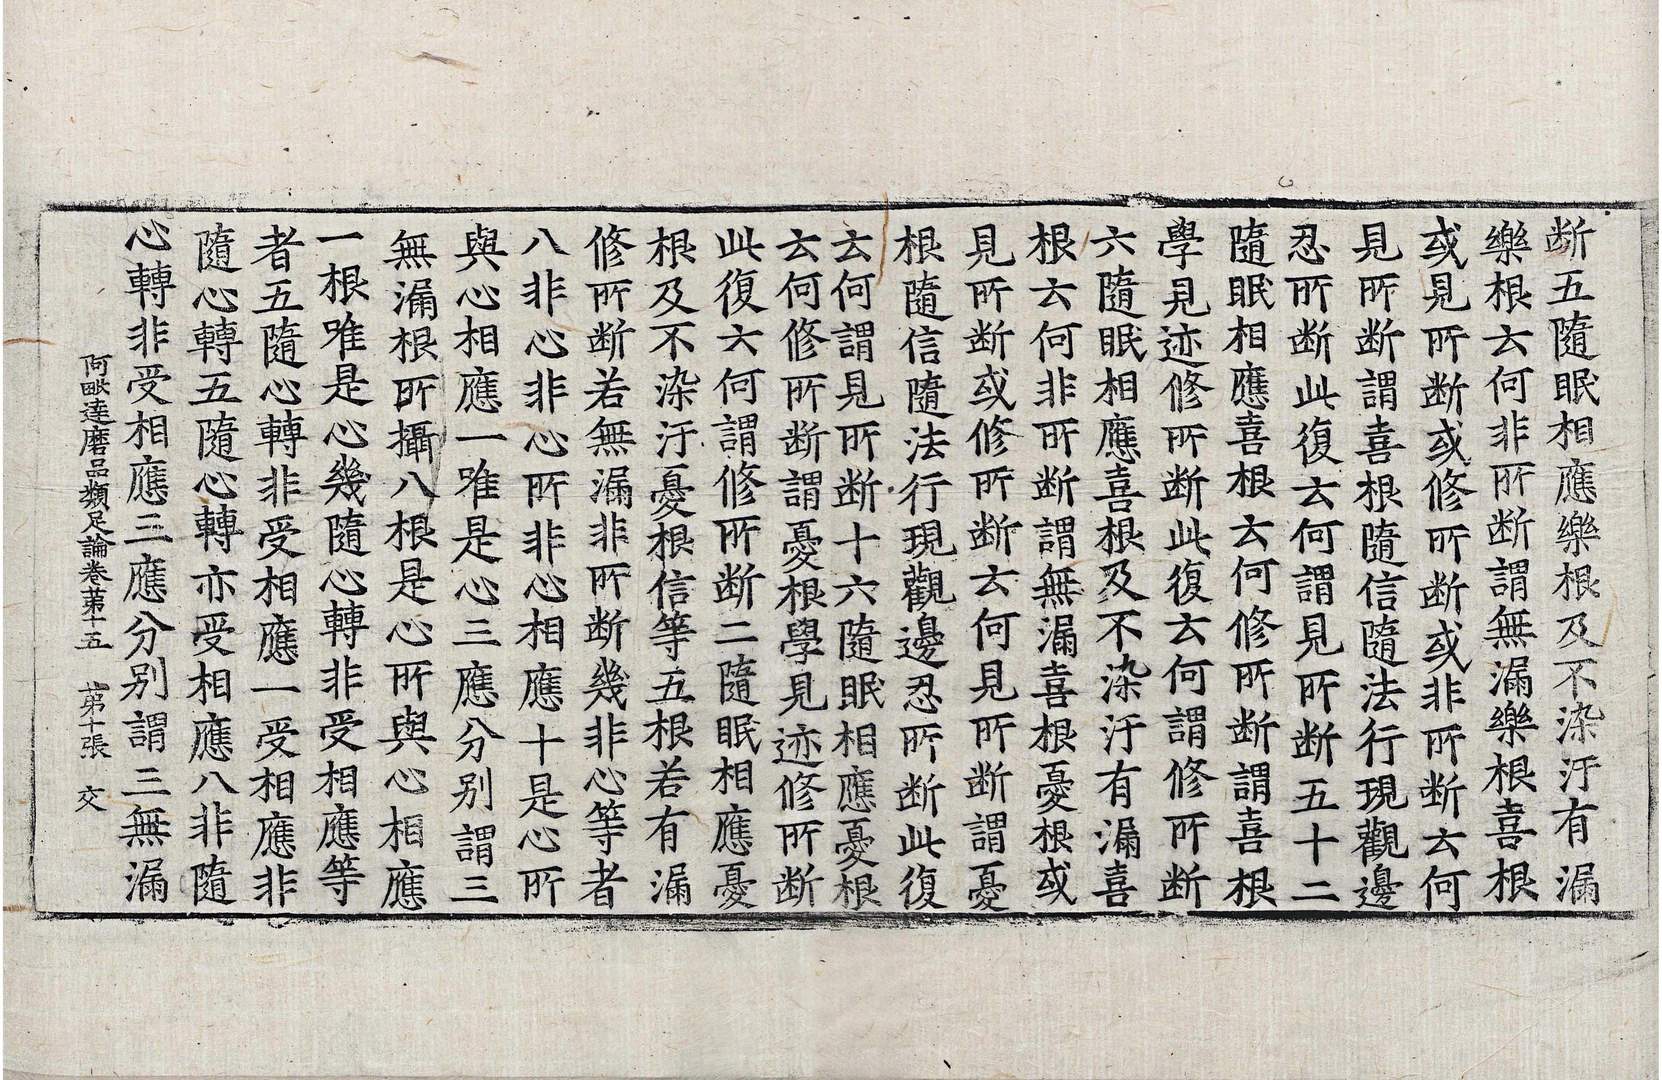 断五隨眠相應樂根及不染汙有漏
樂根云何非所断謂無漏樂根喜根
或見所断或修所断或非所断云何
見所断謂喜根隨信隨法行現觀邊
忍所断此復云何謂見所断五十二
隨眠相應喜根云何修所断謂喜根
學見迹修所断此復云何謂修所断
六隨眠相應喜根及不染汙有漏喜
根云何非所断謂無漏喜根憂根或
見所断或修所断云何見所断謂憂
根隨信隨法行現觀邊忍所断此復
云何謂見所断十六隨眠相應憂根
云何修所断謂憂根學見迹修所断
此復云何謂修所断二隨眠相應憂
根及不染汙憂根信等五根若有漏
修所断若無漏非所断幾非心等者
八非心非心所非心相應十是心所
與心相應一唯是心三應分別謂三
無漏根所攝八根是心所與心相應
一根唯是心幾隨心轉非受相應等
者五隨心轉非受相應一受相應非
隨心轉五隨心轉亦受相應八非隨
心轉非受相應三應分別謂三無漏
阿毗達磨品類足論卷苐十五 苐十張 交